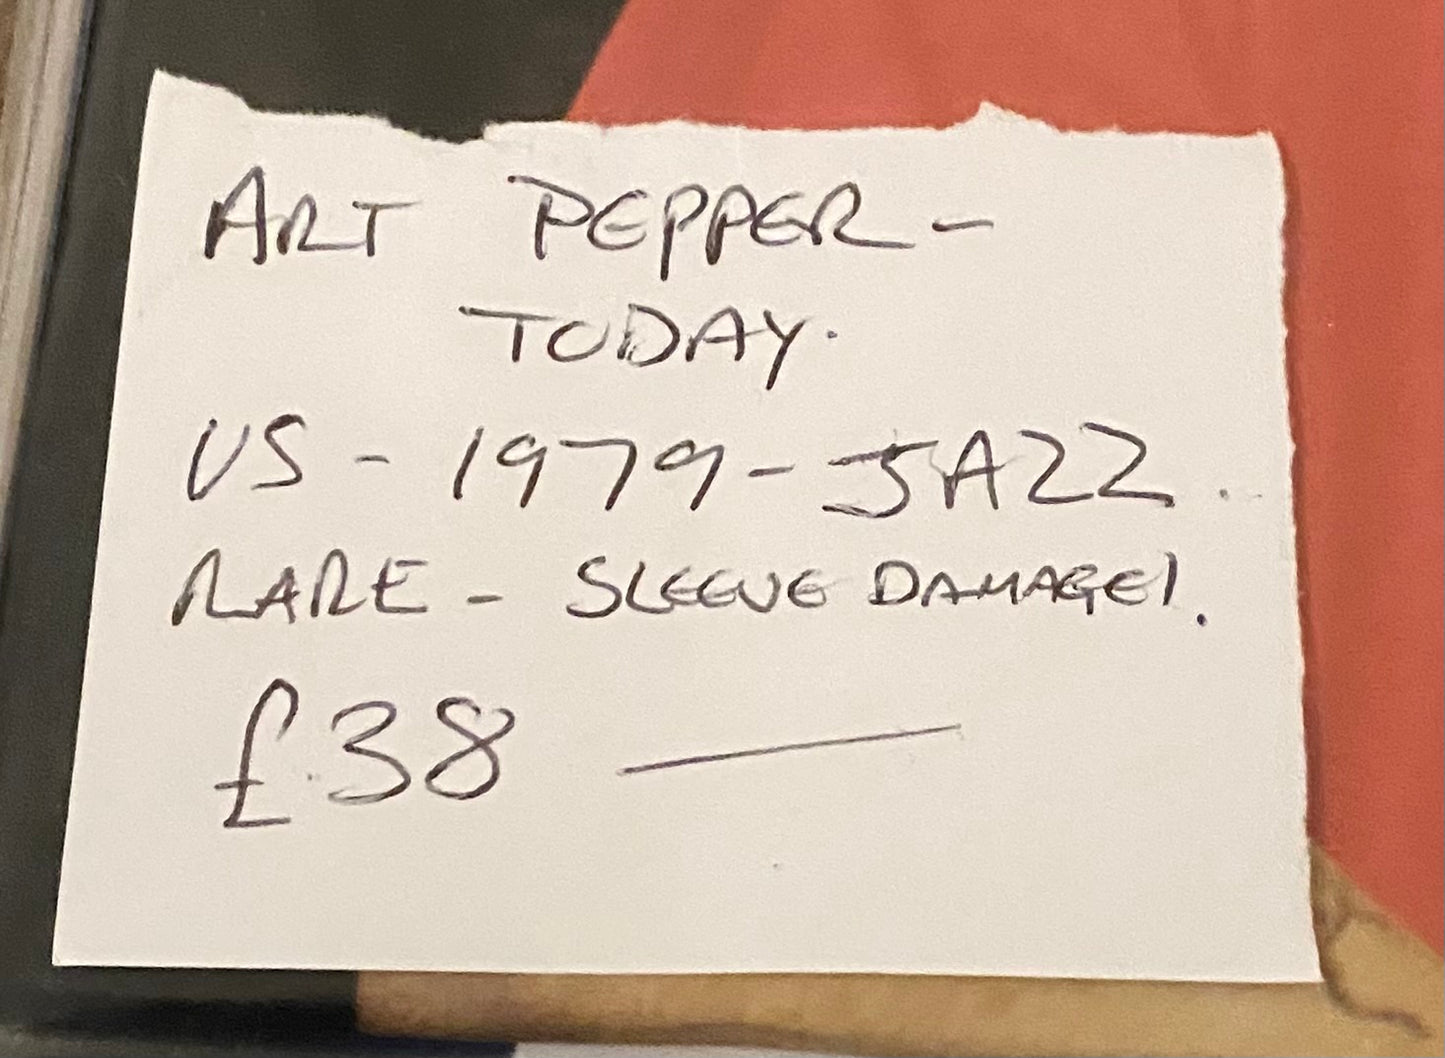 ART PEPPER -
TODAY.
US - 1979 - JAZZ.
RARE - SLEEVE DAMAGE!
£38 —